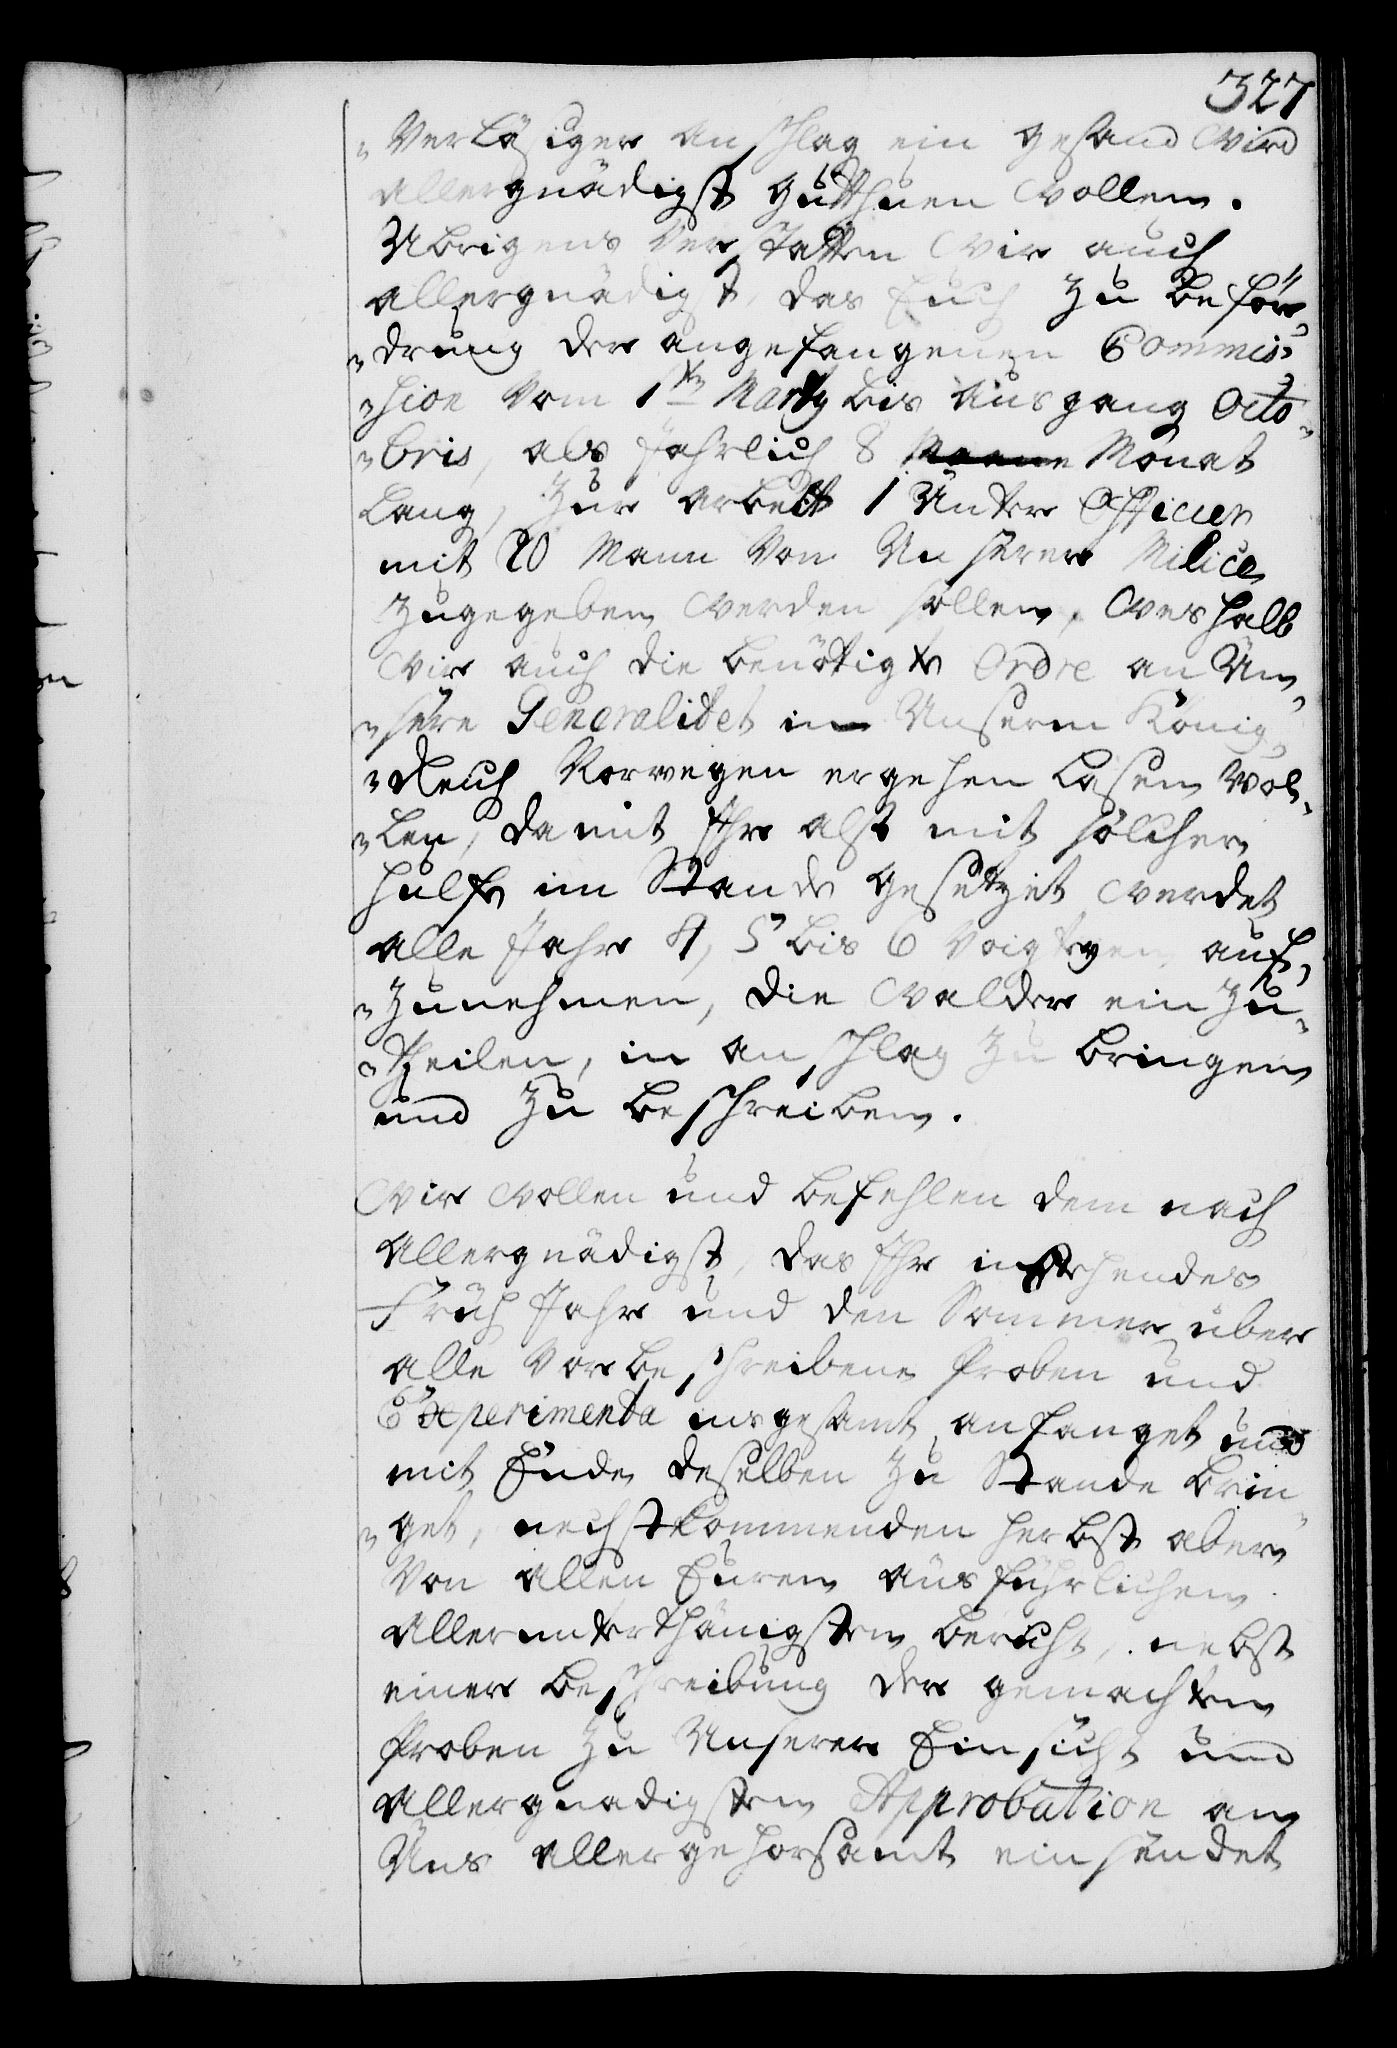 327
"Verläsiger Anschlag ein gesand wird
Allergnädigst gutthuen wollen.
Ubrigens verstatten wir auch
allergnädigst, das Euch zu beför„
„drung der angefangenen Commis„
„sion vom 1ten Marty bis Ausgang Octo„
„bris, als Jahrlich 8 Monat
lang, zur Arbeit 1 Unter Officier
mit 20 Mann von Unserer Milice
zugegeben werden sollen, weshalb
wir auch die benötigte Ordre an Un„
„sere Generalitet in Unserm König„
„Reich Norwegen ergehen lasen wol„
„len, damit Ihr also mit sölcher
hülfe im Stande gesetzet werdet
alle Jahr 4, 5 bis 6 Voigteyen auf„
„zunehmen, die Wälder ein zu„
„theilen, in Anschlag zu bringen
und zu beschreiben.
Wir wollen und befehlen dem nach
Allergnädigst, das Ihr instehendes
Früh Jahr und den Sommer über
alle vorbeschreibene Proben und
Experimenta insgesamt anfanget und
mit Ende deselben zu Stande brin„
„get, nechstkommenden herbst aber
von allen Euren ausführlichen
Allerunterthänigsten bericht, nebst
einer beschreibung der gemachten
Proben zu Unserer Einsicht und
Allergnadigsten Approbation an
Uns allergehorsamt einsendet